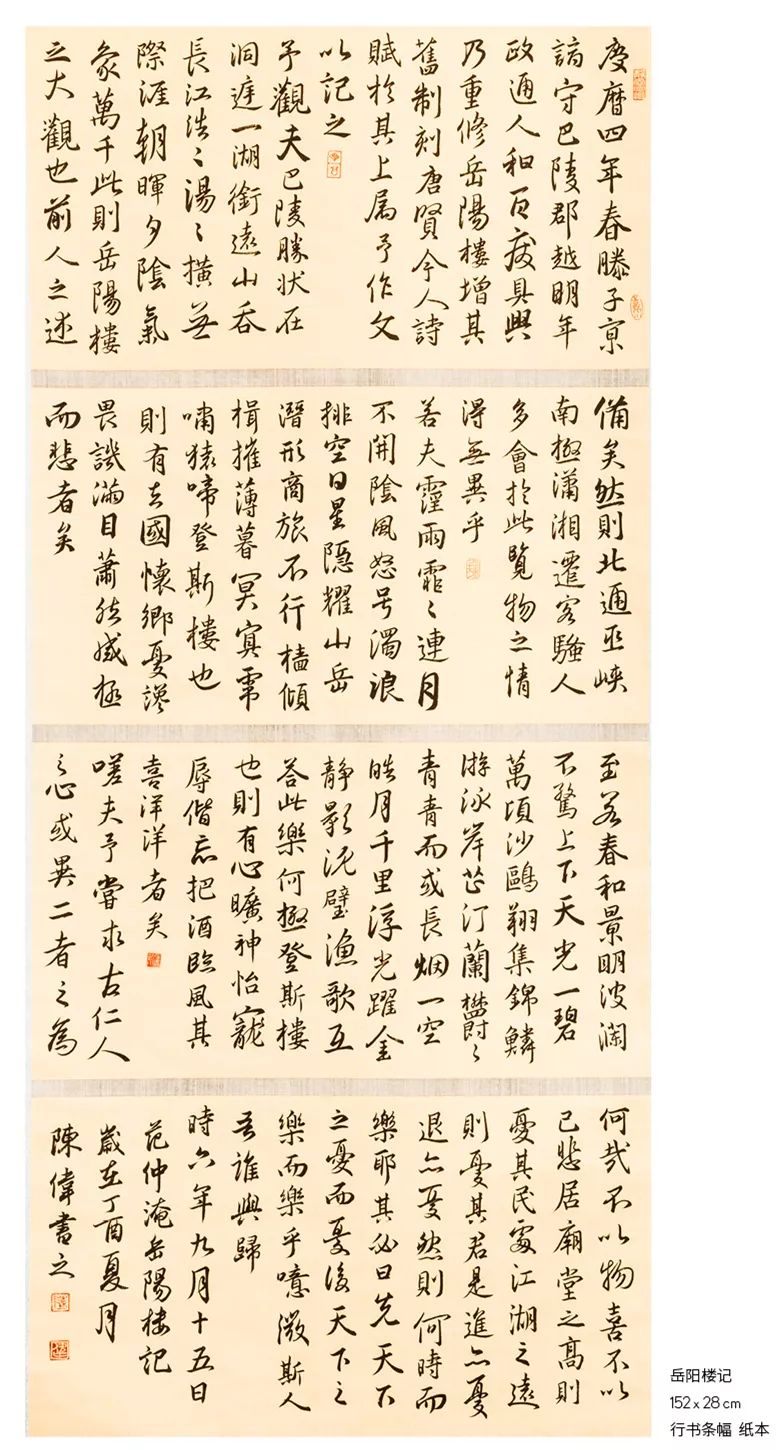 慶曆四年春滕子京
謫守巴陵郡越明年
政通人和百廢具興
乃重修岳陽樓增其
舊制刻唐賢今人詩
賦於其上属予作文
以記之
予觀夫巴陵勝狀在
洞庭一湖銜遠山吞
長江浩々湯々橫無
際涯朝暉夕陰氣
象萬千此則岳陽樓
之大觀也前人之述
備矣然則北通巫峽
南極瀟湘遷客騷人
多會於此覽物之情
得無異乎
若夫霪雨霏々連月
不開陰風怒号濁浪
排空日星隱耀山岳
潛形商旅不行檣傾
楫摧薄暮冥冥虎
嘯猿啼登斯樓也
則有去國懷鄉憂讒
畏譏滿目蕭然感極
而悲者矣
至若春和景明波瀾
不驚上下天光一碧
萬頃沙鷗翔集錦鱗
游泳岸芷汀蘭鬱々
青青而或長烟一空
皓月千里浮光躍金
靜影沉璧漁歌互
答此樂何極登斯樓
也則有心曠神怡寵
辱偕忘把酒臨風其
喜洋洋者矣
嗟夫予嘗求古仁人
之心或異二者之為
何哉不以物喜不以
己悲居廟堂之高則
憂其民處江湖之遠
則憂其君是進亦憂
退亦憂然則何時而
樂耶其必曰先天下
之憂而憂後天下之
樂而樂乎噫微斯人
吾誰與歸
時六年九月十五日
范仲淹岳陽樓記
歲在丁酉夏月
陳偉書之
岳阳楼记
152 x 28 cm
行书条幅 纸本